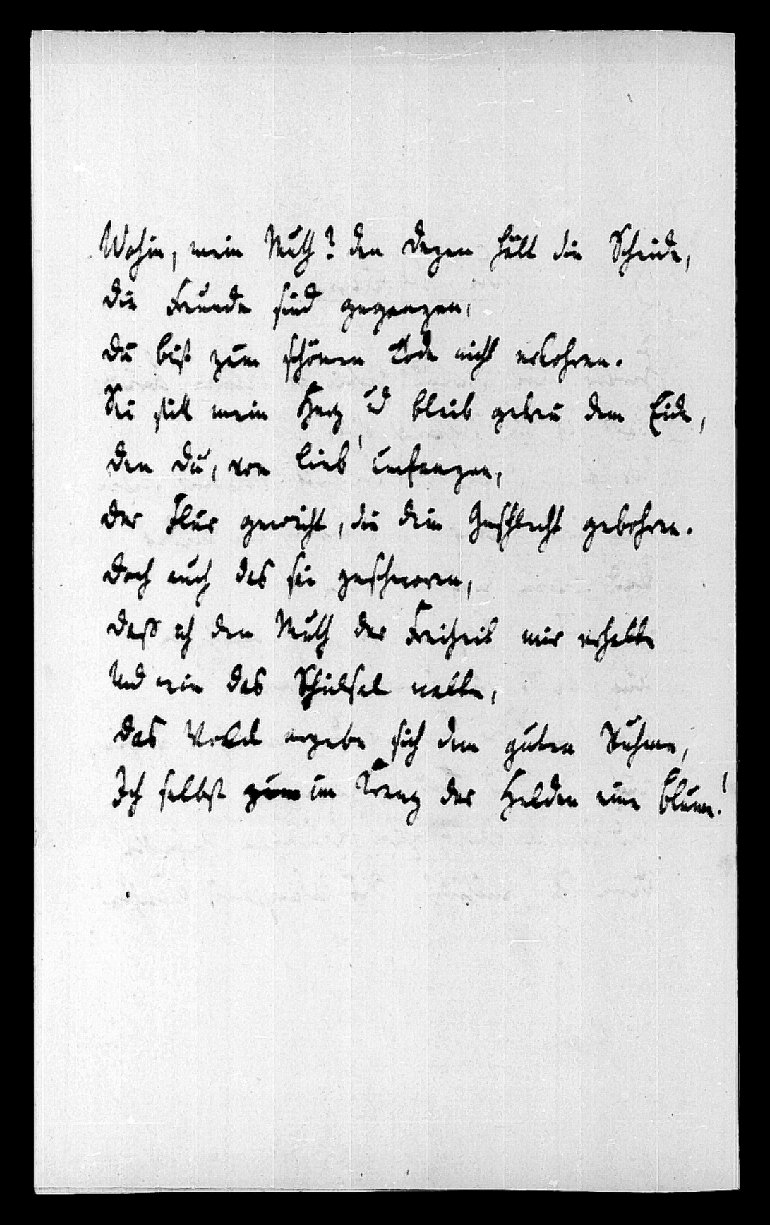 Wohin, mein Muth? den Degen hält die Scheide,
Die Freunde sind gegangen,
Du bist zum schönen Tode nicht erkohren.
Sei still mein Herz, u̅d bleib getreu dem Eide,
Den du, von Lieb' umfangen,
Der Flur geweiht, die dein Geschlecht gebohren.
Doch auch das sei geschworen,
Daß ich den Muth der Freiheit mir erhalte
Und wie das Schicksal walte,
Das Volk ergebe sich dem guten Ruhme,
Ich selbst im Kranz der Helden eine Blume!